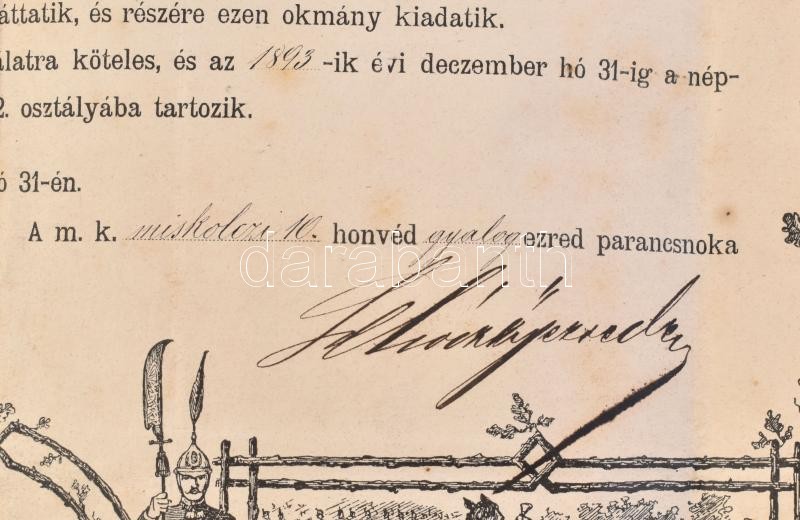 áttatik, és részére ezen okmány kiadatik.
álatra köteles, és az 1893-ik évi deczember hó 31-ig a nép-
2. osztályába tartozik.
ó 31-én.
A m. k. miskolczi 10. honvéd gyalogezred parancsnoka
darabanth